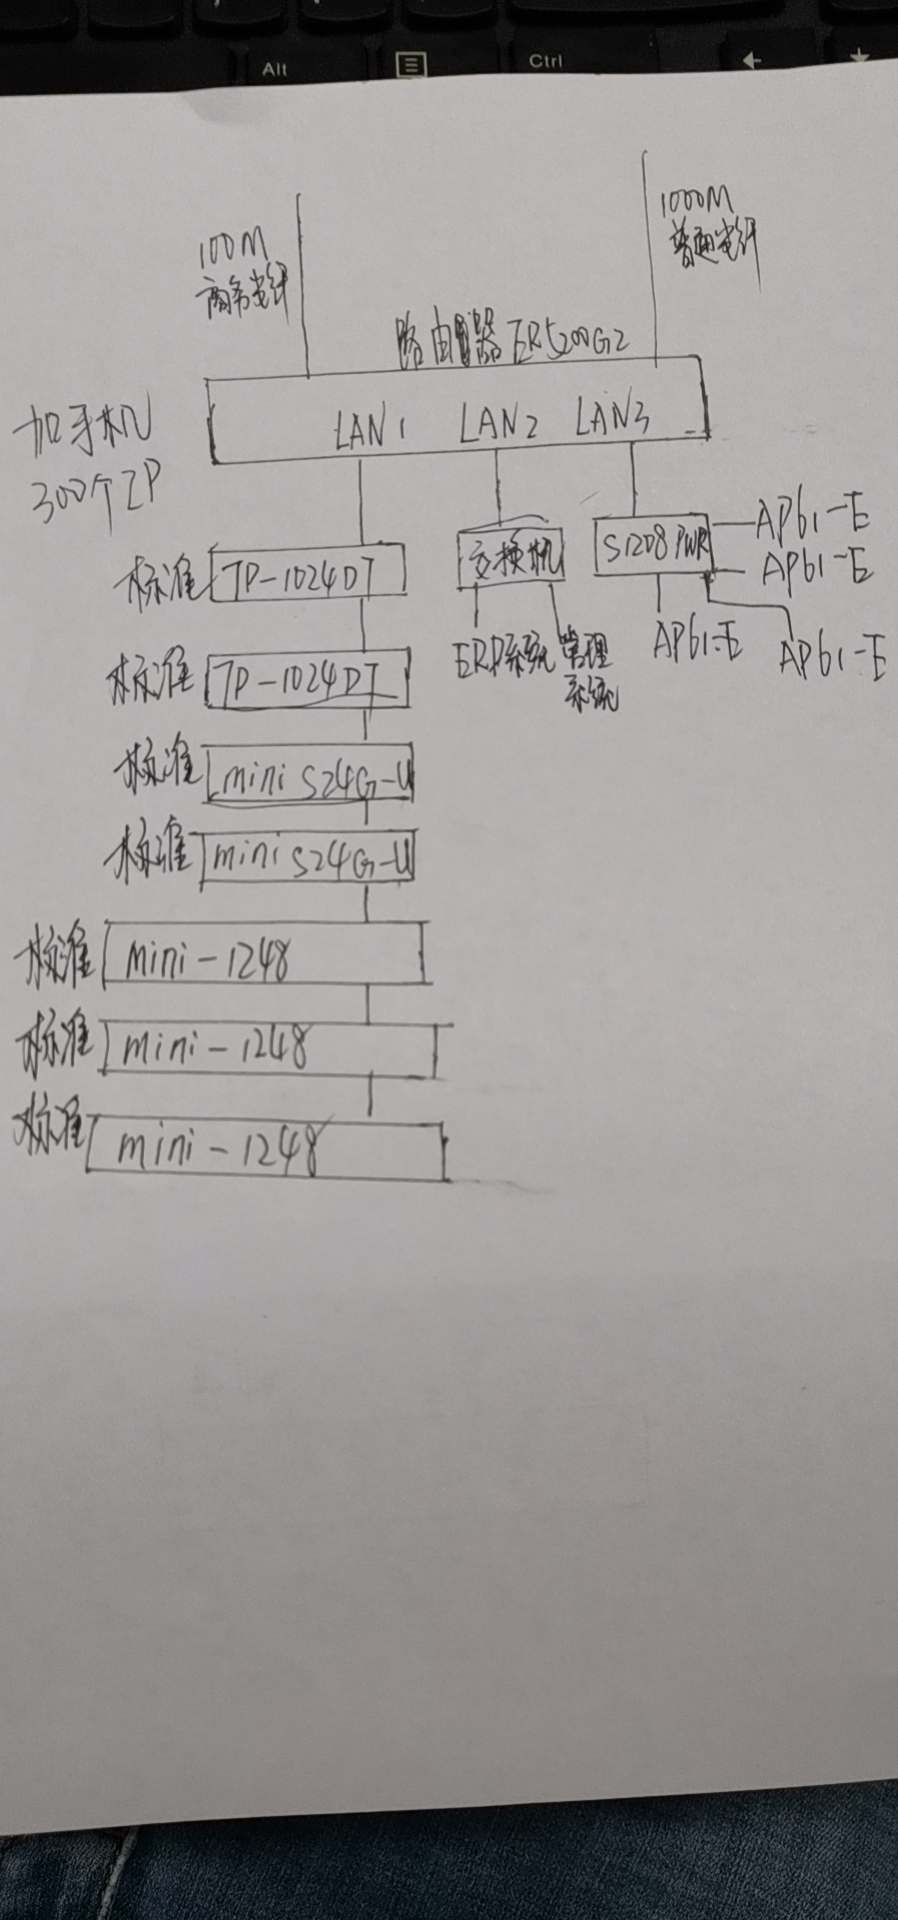 Alt
Ctrl
100M
商务光纤
1000M
普通光纤
路由器 ER5200G2
加手机
300个IP
LAN1 LAN2 LAN3
标准 TP-1024DT
交换机
S1208 PWR
AP61-E
AP61-E
AP61-E
AP61-E
ERP系统
管理
系统
标准 TP-1024DT
标准 mini S24G-U
标准 mini S24G-U
标准 mini-1248
标准 mini-1248
标准 mini-1248